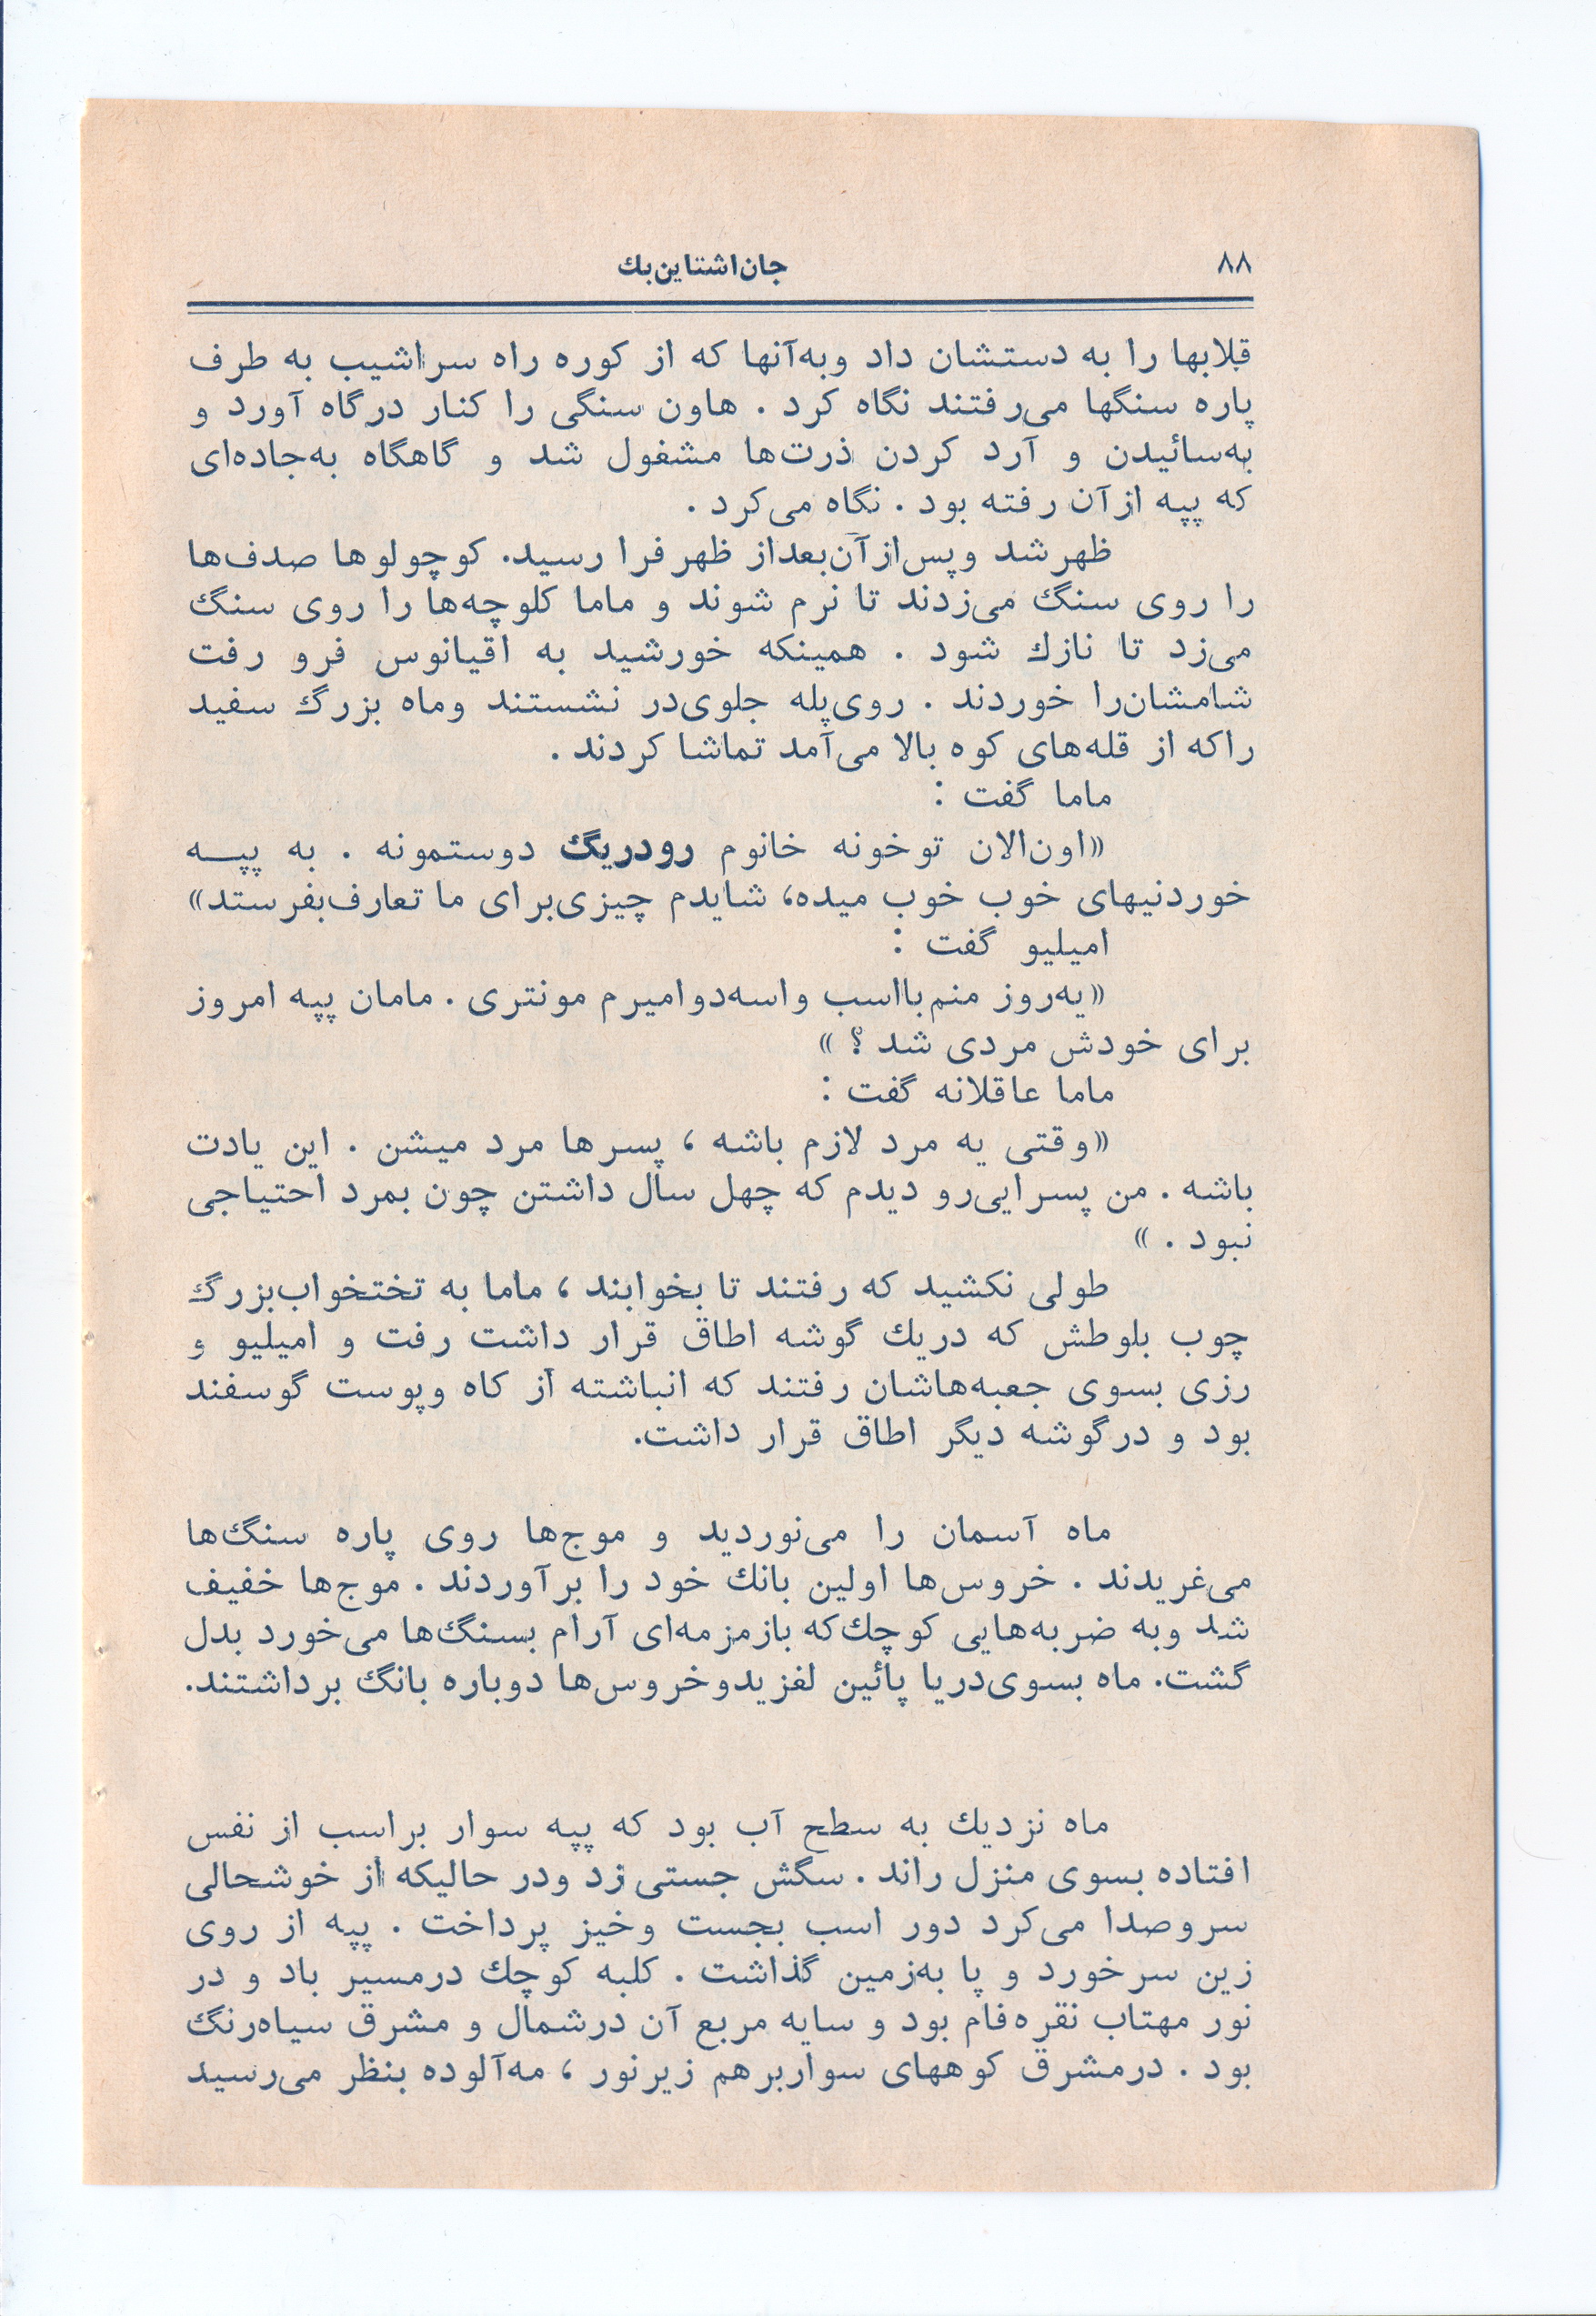 ۸۸
جان‌اشتاین‌بك
قلابها را به دستشان داد وبه‌آنها که از کوره راه سراشیب به طرف
پاره سنگها می‌رفتند نگاه کرد . هاون سنگی را کنار درگاه آورد و
به‌سائیدن و آرد کردن ذرت‌ها مشغول شد و گاهگاه به‌جاده‌ای
که پپه ازآن رفته بود . نگاه می‌کرد .
ظهرشد وپس‌ازآن‌بعداز ظهرفرا رسید. کوچولوها صدف‌ها
را روی سنگ می‌زدند تا نرم شوند و ماما کلوچه‌ها را روی سنگ
می‌زد تا نازك شود . همینکه خورشید به اقیانوس فرو رفت
شامشان‌را خوردند . روی‌پله جلوی‌در نشستند وماه بزرگ سفید
راکه از قله‌های کوه بالا می‌آمد تماشا کردند .
ماما گفت :
«اون‌الان توخونه خانوم رودریگ دوستمونه . به پپـه
خوردنیهای خوب خوب میده، شایدم چیزی‌برای ما تعارف‌بفرستد»
امیلیو گفت :
«یه‌روز منم‌بااسب واسه‌دوامیرم مونتری . مامان پپه امروز
برای خودش مردی شد ؟ »
ماما عاقلانه گفت :
«وقتی یه مرد لازم باشه ، پسرها مرد میشن . این یادت
باشه . من پسرایی‌رو دیدم که چهل سال داشتن چون بمرد احتیاجی
نبود . »
طولی نکشید که رفتند تا بخوابند ، ماما به تختخواب‌بزرگ
چوب بلوطش که دریك گوشه اطاق قرار داشت رفت و امیلیو و
رزی بسوی جعبه‌هاشان رفتند که انباشته از کاه وپوست گوسفند
بود و درگوشه دیگر اطاق قرار داشت.
ماه آسمان را می‌نوردید و موج‌ها روی پاره سنگ‌ها
می‌غریدند . خروس‌ها اولین بانك خود را برآوردند . موج‌ها خفیف
شد وبه ضربه‌هایی کوچك‌که بازمزمه‌ای آرام بسنگ‌ها می‌خورد بدل
گشت. ماه بسوی‌دریا پائین لغزیدوخروس‌ها دوباره بانگ برداشتند.
ماه نزدیك به سطح آب بود که پپه سوار براسب از نفس
افتاده بسوی منزل راند . سگش جستی زد ودر حالیکه از خوشحالی
سروصدا می‌کرد دور اسب بجست وخیز پرداخت . پپه از روی
زین سرخورد و پا به‌زمین گذاشت . کلبه کوچك درمسیر باد و در
نور مهتاب نقره‌فام بود و سایه مربع آن درشمال و مشرق سیاه‌رنگ
بود . درمشرق کوههای سواربرهم زیرنور ، مه‌آلوده بنظر می‌رسید